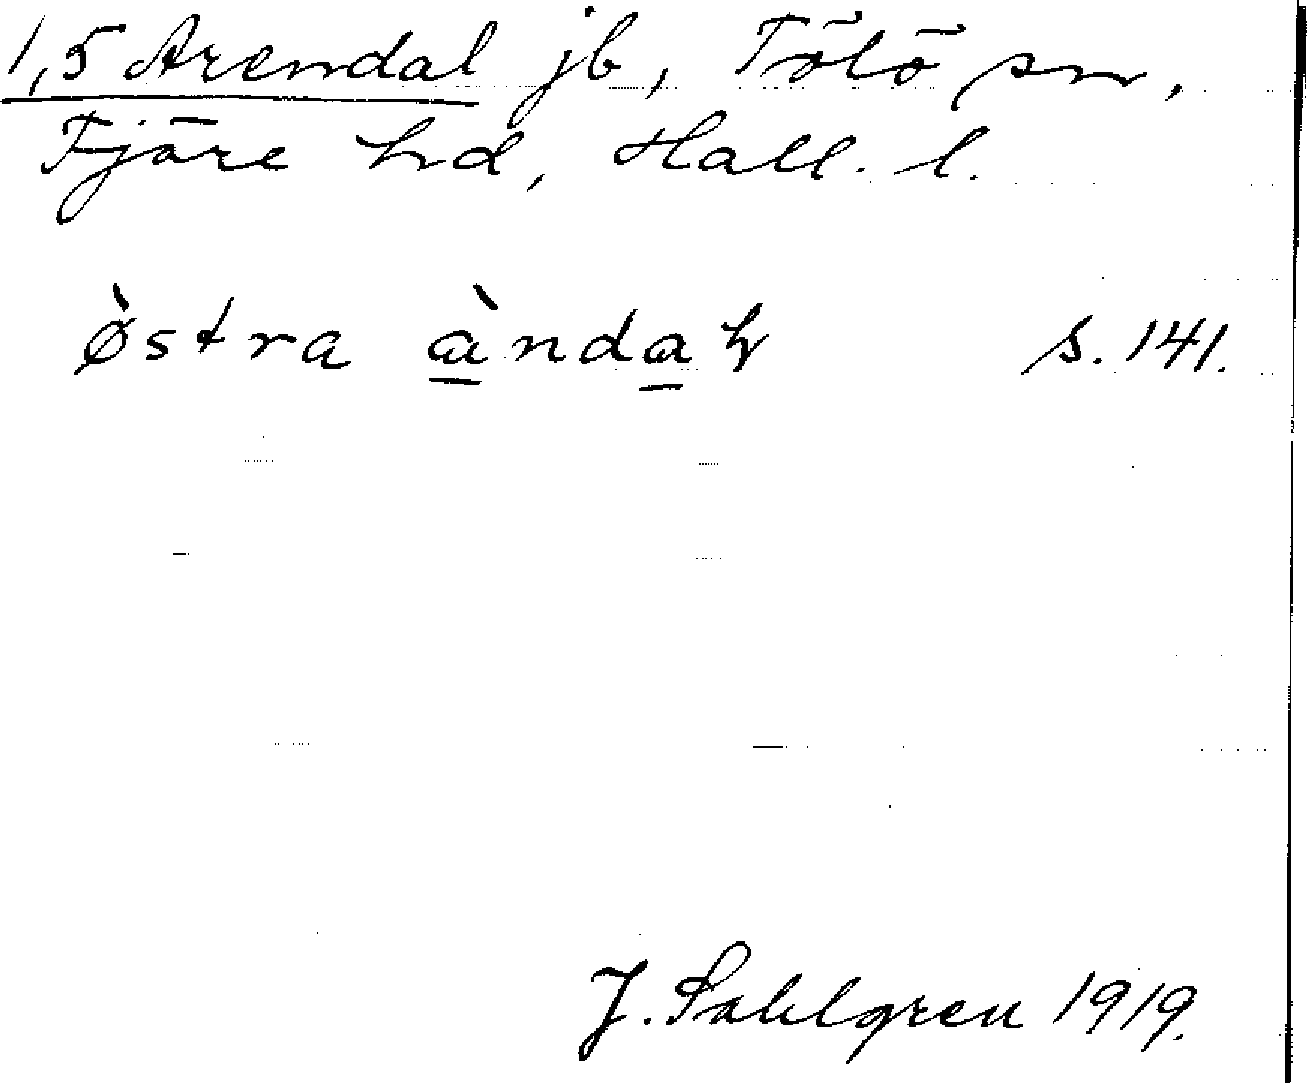 1,5 Arendal jb, Tölö sn,
Fjäre hd, Hall. l.
ø̀stra àndaɫ s. 141.
J. Sahlgren 1919.